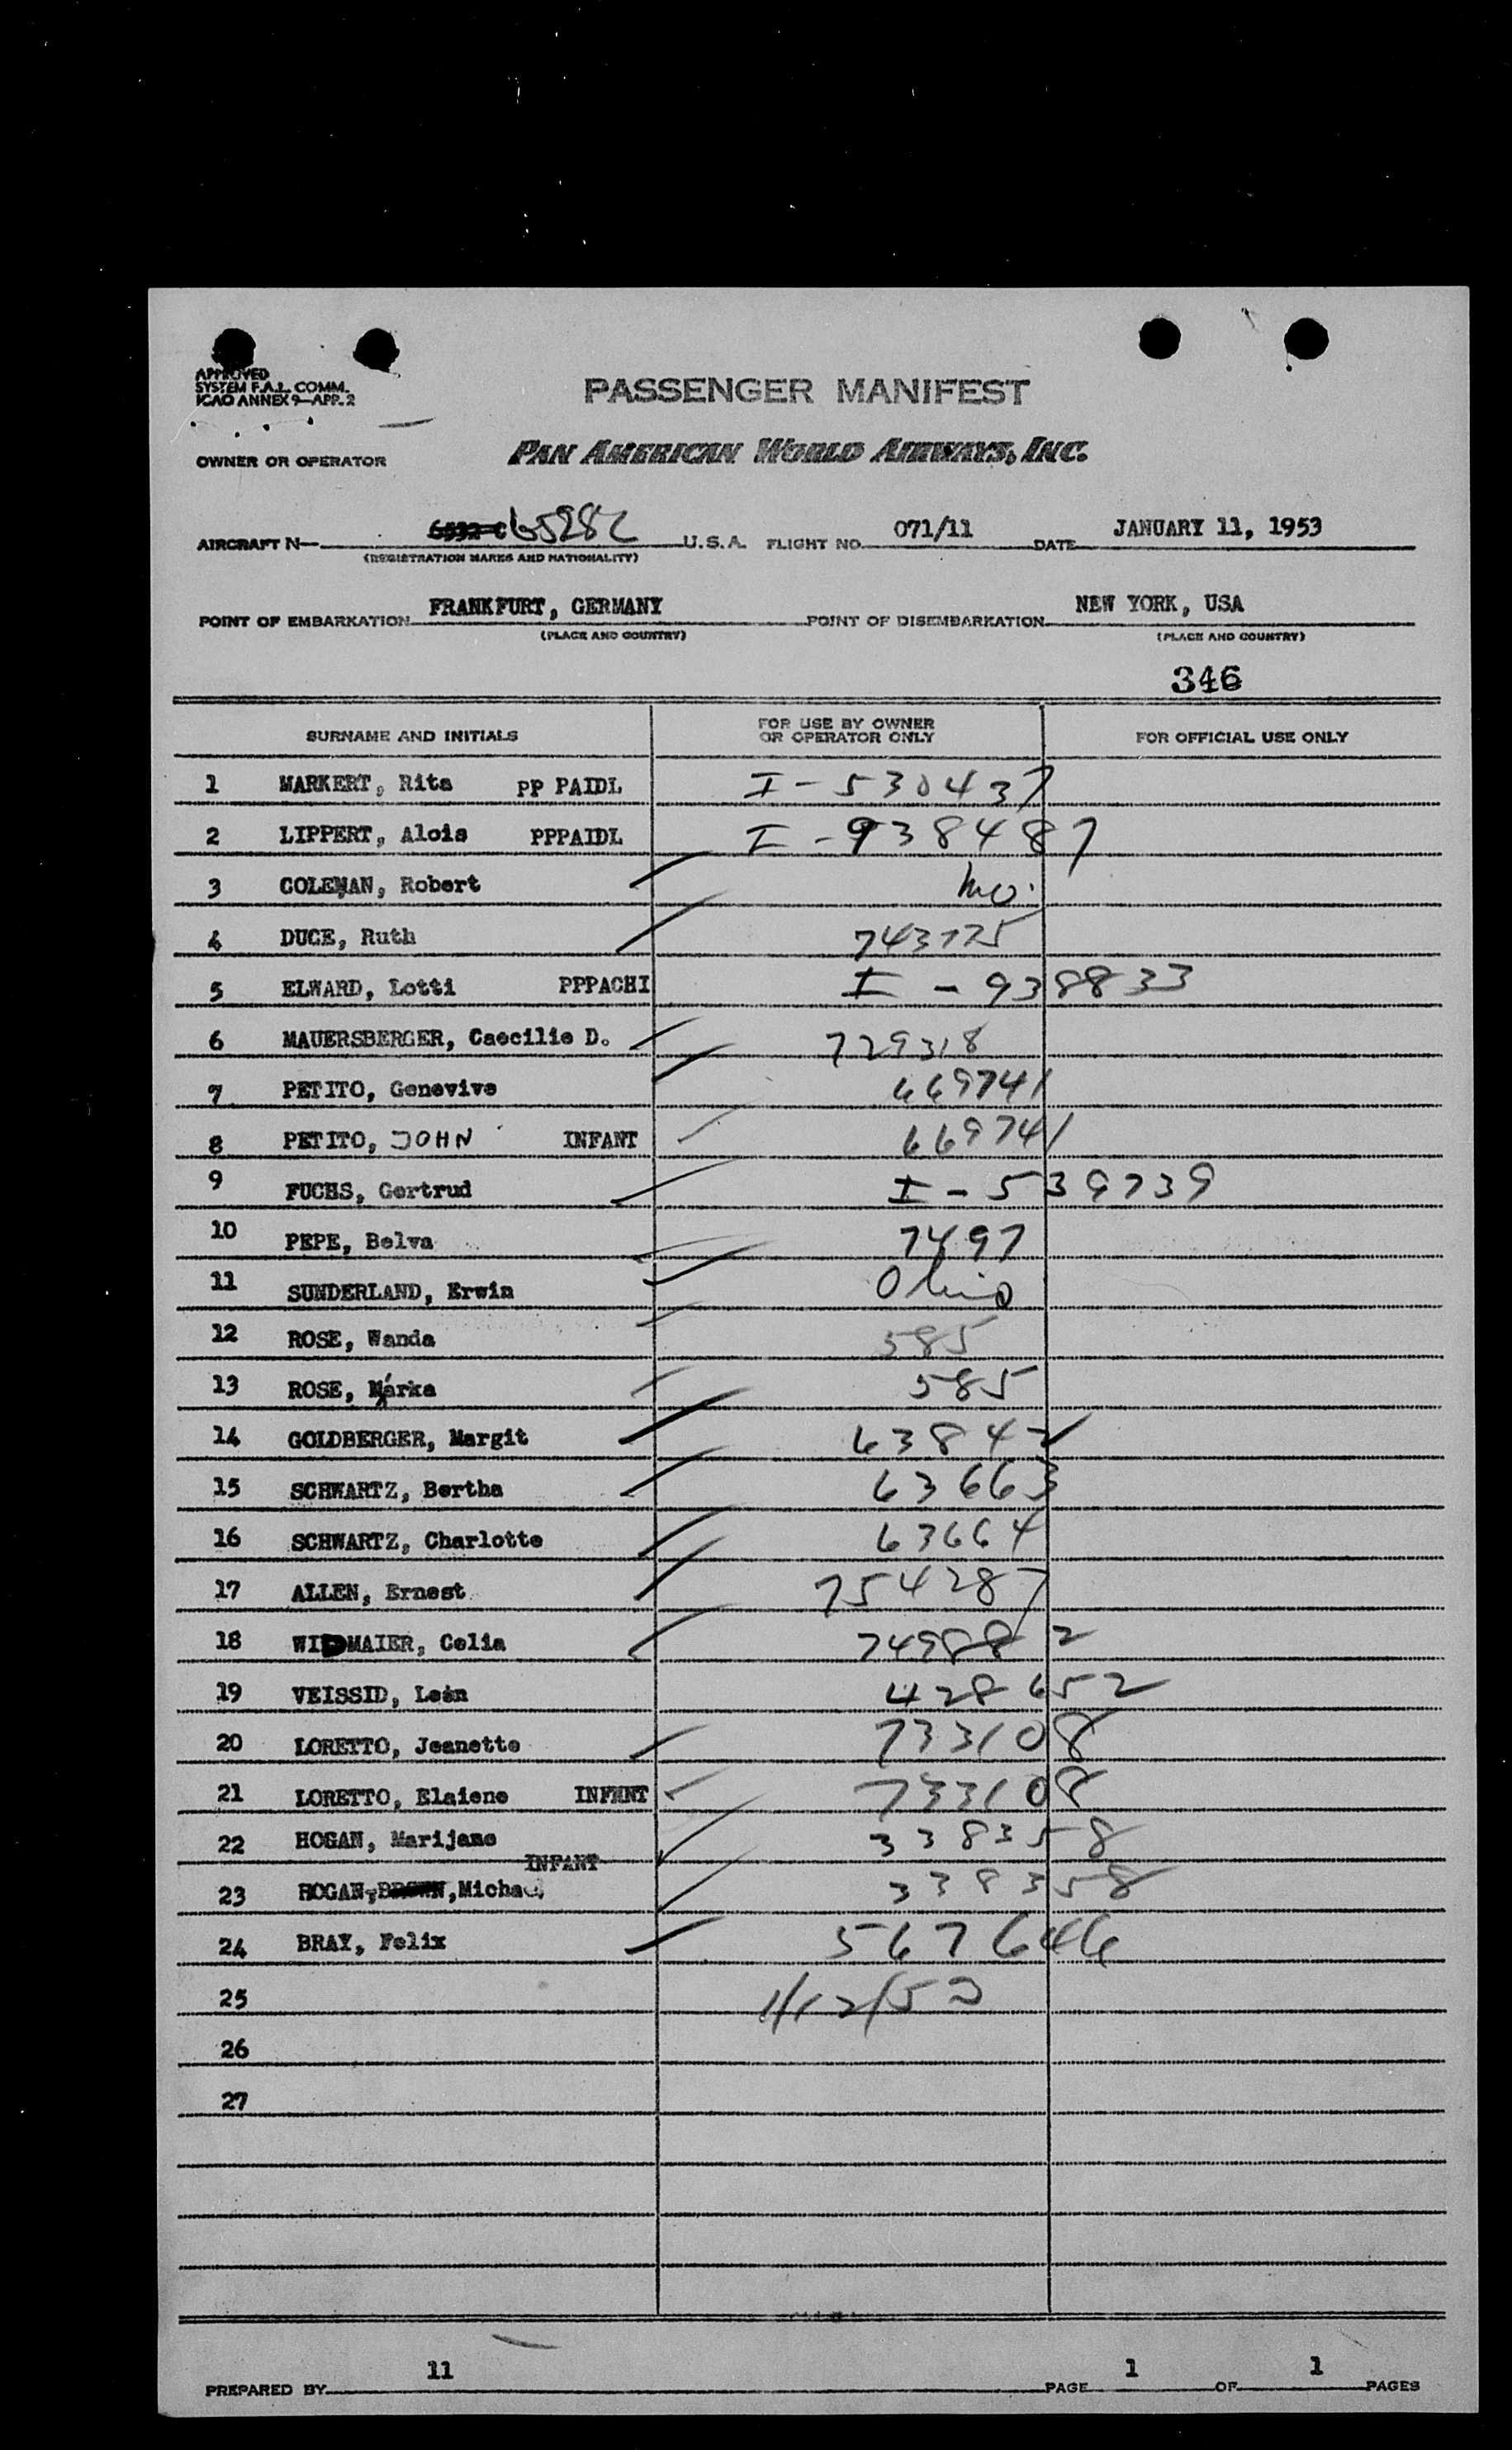 APPROVED
SYSTEM F.A.L. COMM.
ICAO ANNEX 9-APP. 2
PASSENGER MANIFEST
OWNER OR OPERATOR PAN AMERICAN WORLD AIRWAYS, INC.
AIRCRAFT N— 6532-C 6528C U.S.A. FLIGHT NO. 071/11 DATE JANUARY 11, 1953
(REGISTRATION MARKS AND NATIONALITY)
POINT OF EMBARKATION FRANKFURT, GERMANY POINT OF DISEMBARKATION NEW YORK, USA
(PLACE AND COUNTRY) (PLACE AND COUNTRY)
346
SURNAME AND INITIALS FOR USE BY OWNER OR OPERATOR ONLY FOR OFFICIAL USE ONLY
1 MARKERT, Rita PP PAIDL I-530437
2 LIPPERT, Alois PPPAIDL I-938487
3 COLEMAN, Robert Mo.
4 DUCE, Ruth 743775
5 ELWARD, Lotti PPPACHI I-938833
6 MAUERSBERGER, Caecilie D. 729318
7 PETITO, Genevive 669741
8 PETITO, JOHN INFANT 669741
9 FUCHS, Gertrud I-539739
10 PEPE, Belva 7497
11 SUNDERLAND, Erwin Ohio
12 ROSE, Wanda 585
13 ROSE, Marka 585
14 GOLDBERGER, Margit 63842
15 SCHWARTZ, Bertha 63663
16 SCHWARTZ, Charlotte 63664
17 ALLEN, Ernest 754287
18 WIDMAIER, Celia 749882
19 VEISSID, León 428652
20 LORETTO, Jeanette 733108
21 LORETTO, Elaiene INFANT 733108
22 HOGAN, Marijane 338358
INFANT
23 HOGAN, BROWN, Michael 338358
24 BRAY, Felix 567646
25 1/12/53
26
27
PREPARED BY 11 PAGE 1 OF 1 PAGES